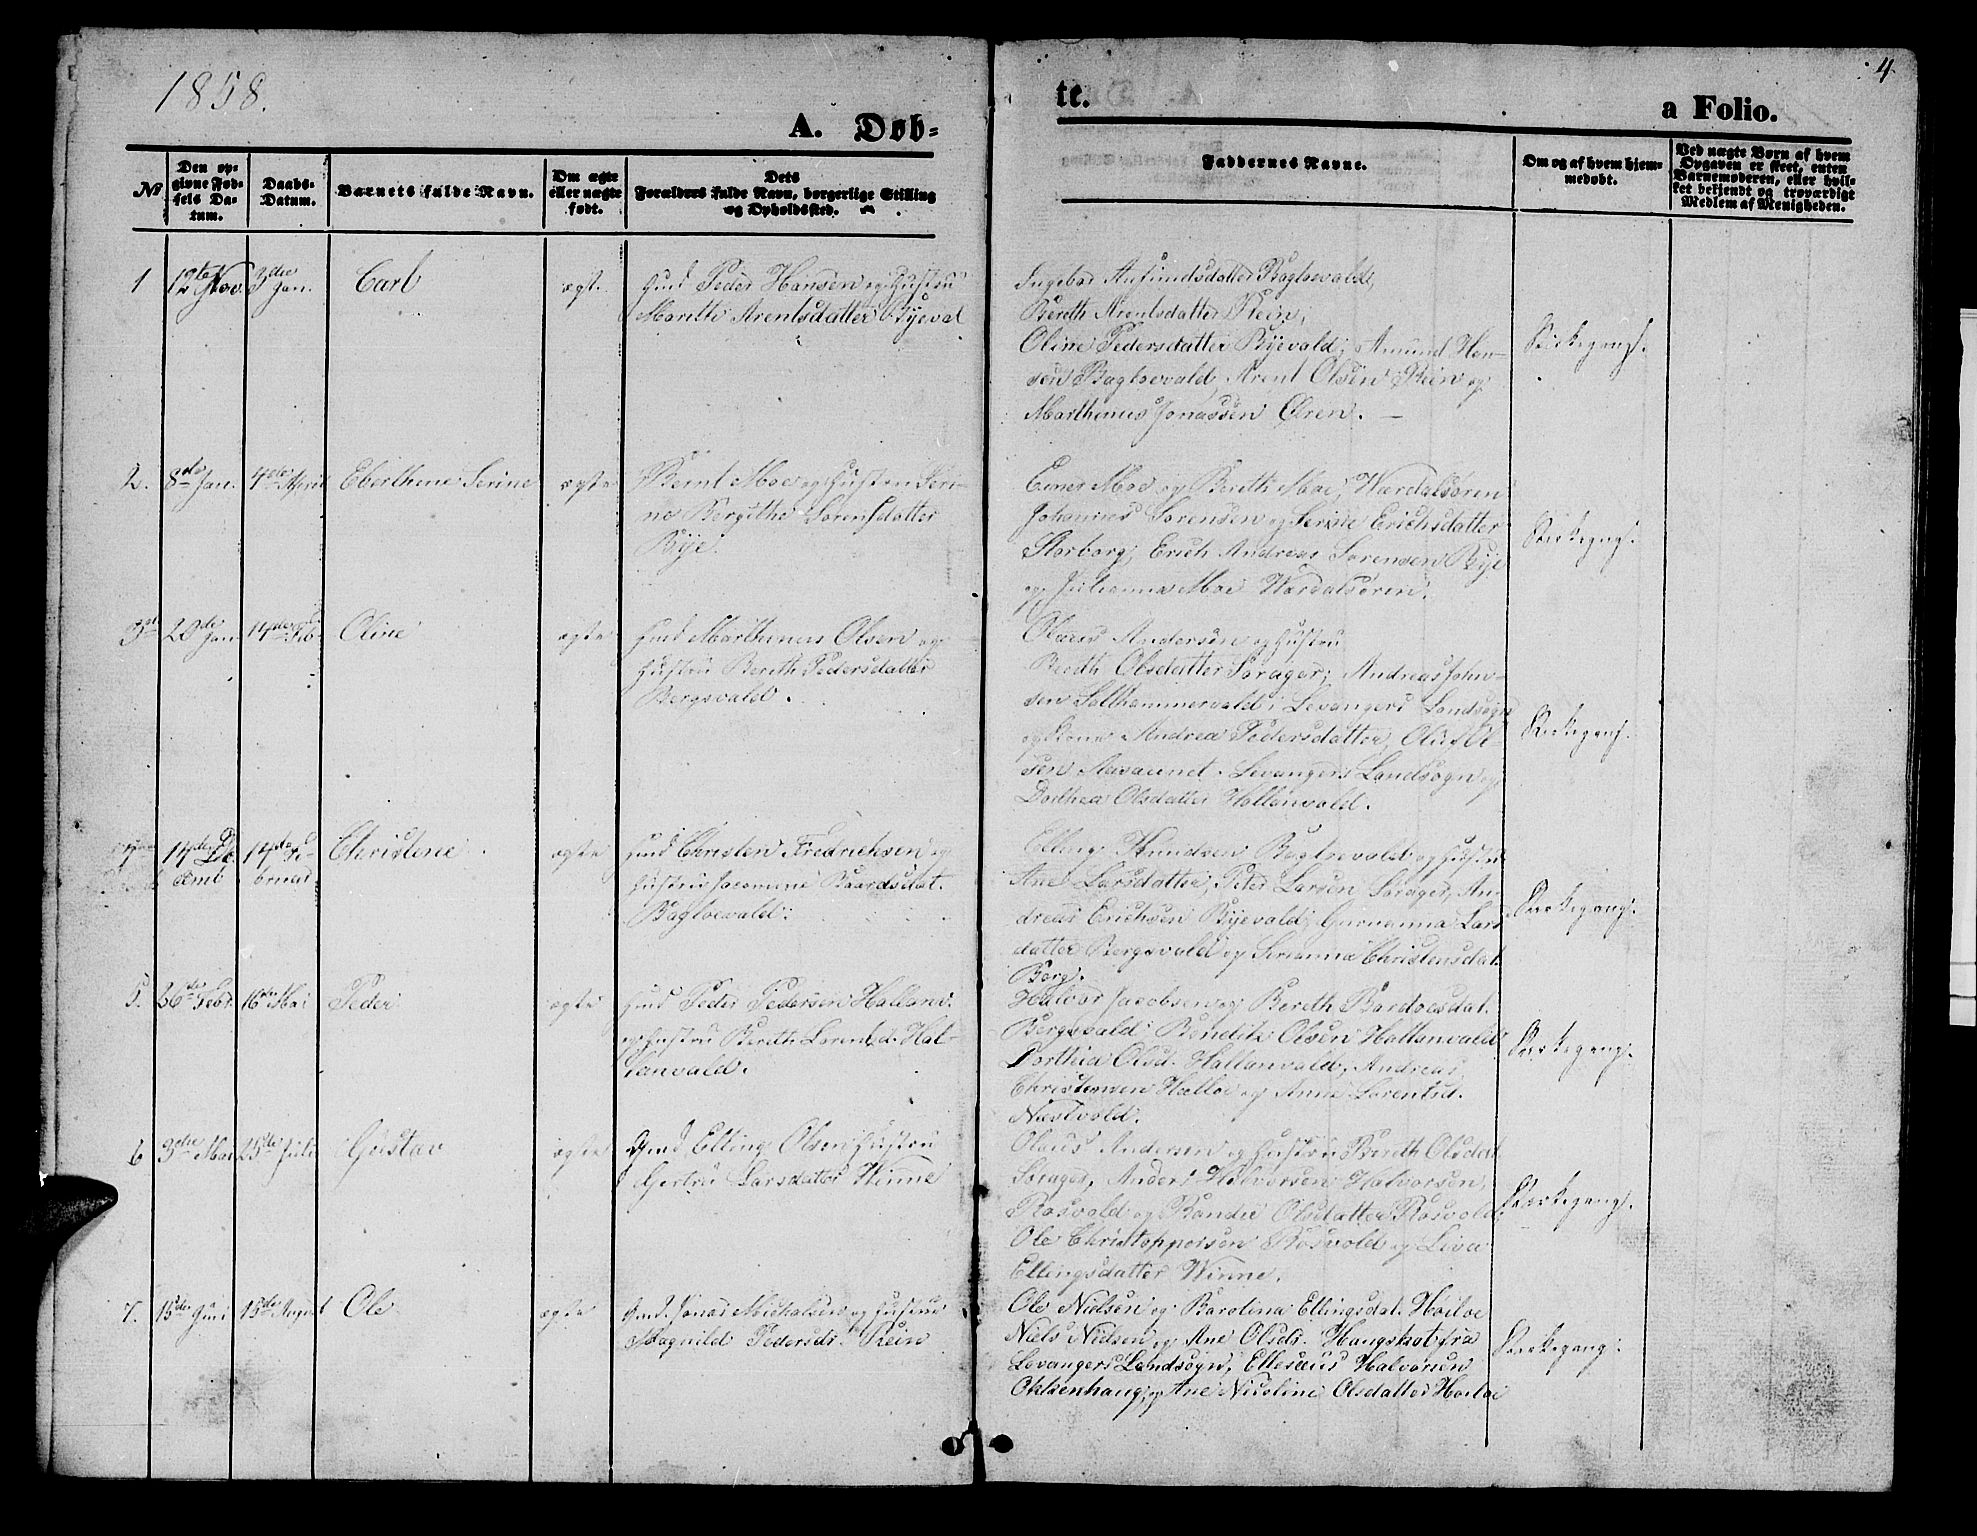 1858.
4
A. Døb-
te.
a Folio.
№
Den op-
givne Fød-
sels Da-
tum.
Daabs-
Datum.
Barnets fulde Navn.
Om ægte
eller uægte
født.
Dets
Forældres fulde Navn, borgerlige Stilling
og Opholdssted.
Faddernes Navne.
Om og af hvem hjem-
medøbt.
Ved uægte Børn af hvem
Opgaven er skeet, enten
Barnemoderen, eller hvil-
ket bekjendt og troværdigt
Medlem af Menigheden.
1
12te Nov.
3die Jan.
Carl
ægte
Hmd Peder Hansen og Hustru
Marith Arentsdatter Byeval
Ingebor Amundsdatter Bagloevald,
Bereth Arentsdatter Rein,
Oline Pedersdatter Byevald; Amund Han-
sen Bagloevald, Arent Olsen Rein og
Marthinus Jonassen Ören. —
Kirkegang.
2.
8de Jan.
4de April
Eberthine Serine
ægte
Bernt Moe og Hustru Seri-
ne Bergithe Sorensdatter
Bye.
Moe og Bereth Moe, Wærdalsören
Johannes Sorensen og Serine Erichsdatter
Storborg, Erich Andreas Sorensen Bye
og Julianna Moe Wærdalsören.
Kirkegang.
3
20de Jan
14de Feb
Oline
ægte
Hmd Marthinus Olsen og
Hustru Bereth Pedersdatter
Bergsvald.
Olaus Andersen og Hustru
Bereth Olsdatter Sorager; Andreas John-
sen Salthammervald i Levangers Landsogn
og Kone Andrea Pedersdatter, Oluf Ol-
sen Levangers Landsogn og
Dorthea Olsdatter Hallanvald.
Kirkegang.
4
14de De
cemb
14de Fe-
bruar
Christine
ægte
Hmd Christen Fredrichsen og
Hustru Jacomine Baardsdat.
Bagloevald.
Elling Knudsen Bagloevald og Hustru
Ane Larsdatter, Peter Larsen Sorager, An-
dreas Erichsen Byevald; Gurianna Lars
datter Bergsvald og Serianna Christensdat.
Borg.
Kirkegang.
5.
26de Febr.
16de Mai
Peder
ægte
Hmd Peder Pedersen Hallanv.
og Hustru Bereth Lorentsd. Hal-
lanvald.
Halvor Jacobsen og Bereth Bardoesdat.
Bergsvald; Bendik Olsen Hallanvald
Dorthea Olsd. Hallanvald, Andreas
Christensen Halloe og Anne Lorentsd.
Næstvold.
Kirkegang.
6
3die Mai
25de Juli
Gustav
ægte
Gmd Elling Olsen Hustru
Gertru Larsdatter Winne
Olaus Andersen og Hustru Bereth Olsdat.
Sorager, Anders Halvorsen Halvorsen,
Rosvold og Olsdatter Rosvold,
Ole Christoppersen Rosvold og Liva
Ellingsdatter Winne.
Kirkegang.
7.
15de Juni
15de August
Ole
ægte
Gmd. Jonas Michalsen og Hustru
Magnild Pedersd. Rein
Ole Nielsen og Karolina Ellingsdat. Hoiloe
Niels Nielsen og Ane Olsd. Haugskot fra
Levangers Landsogn, Ellesæus Halvorsen
Okkenhaug og Ane Nicoline Olsdatter Hoiloe
Kirkegang.